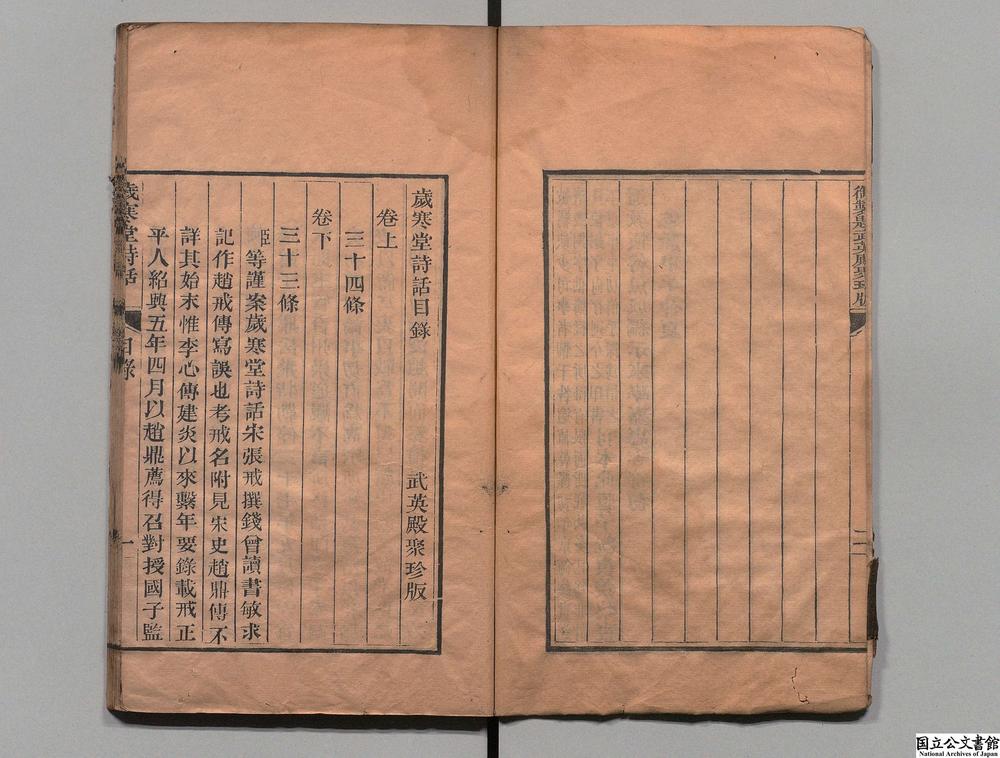 御製題武英殿聚珍版
二
歲寒堂詩話目錄
武英殿聚珍版
卷上
三十四條
卷下
三十三條
臣等謹案歲寒堂詩話宋張戒撰錢曾讀書敏求
記作趙戒傳寫誤也考戒名附見宋史趙鼎傳不
詳其始末惟李心傳建炎以來繫年要錄載戒正
平人紹興五年四月以趙鼎薦得召對授國子監
歲寒堂詩話
目錄
一
国立公文書館
National Archives of Japan